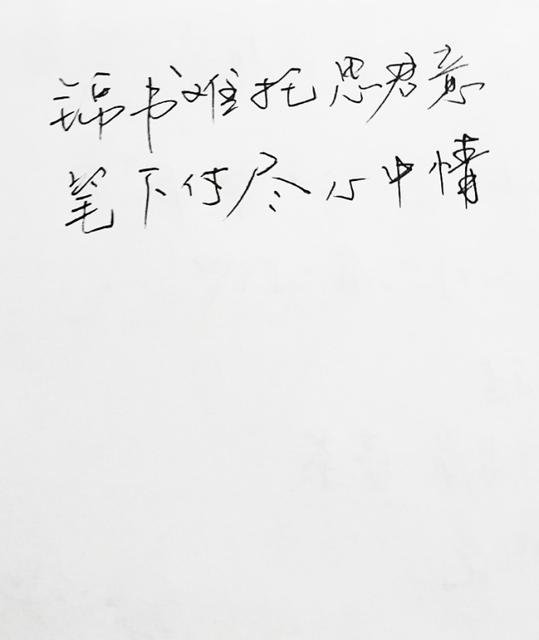 锦书难托思君意
笔下传尽心中情